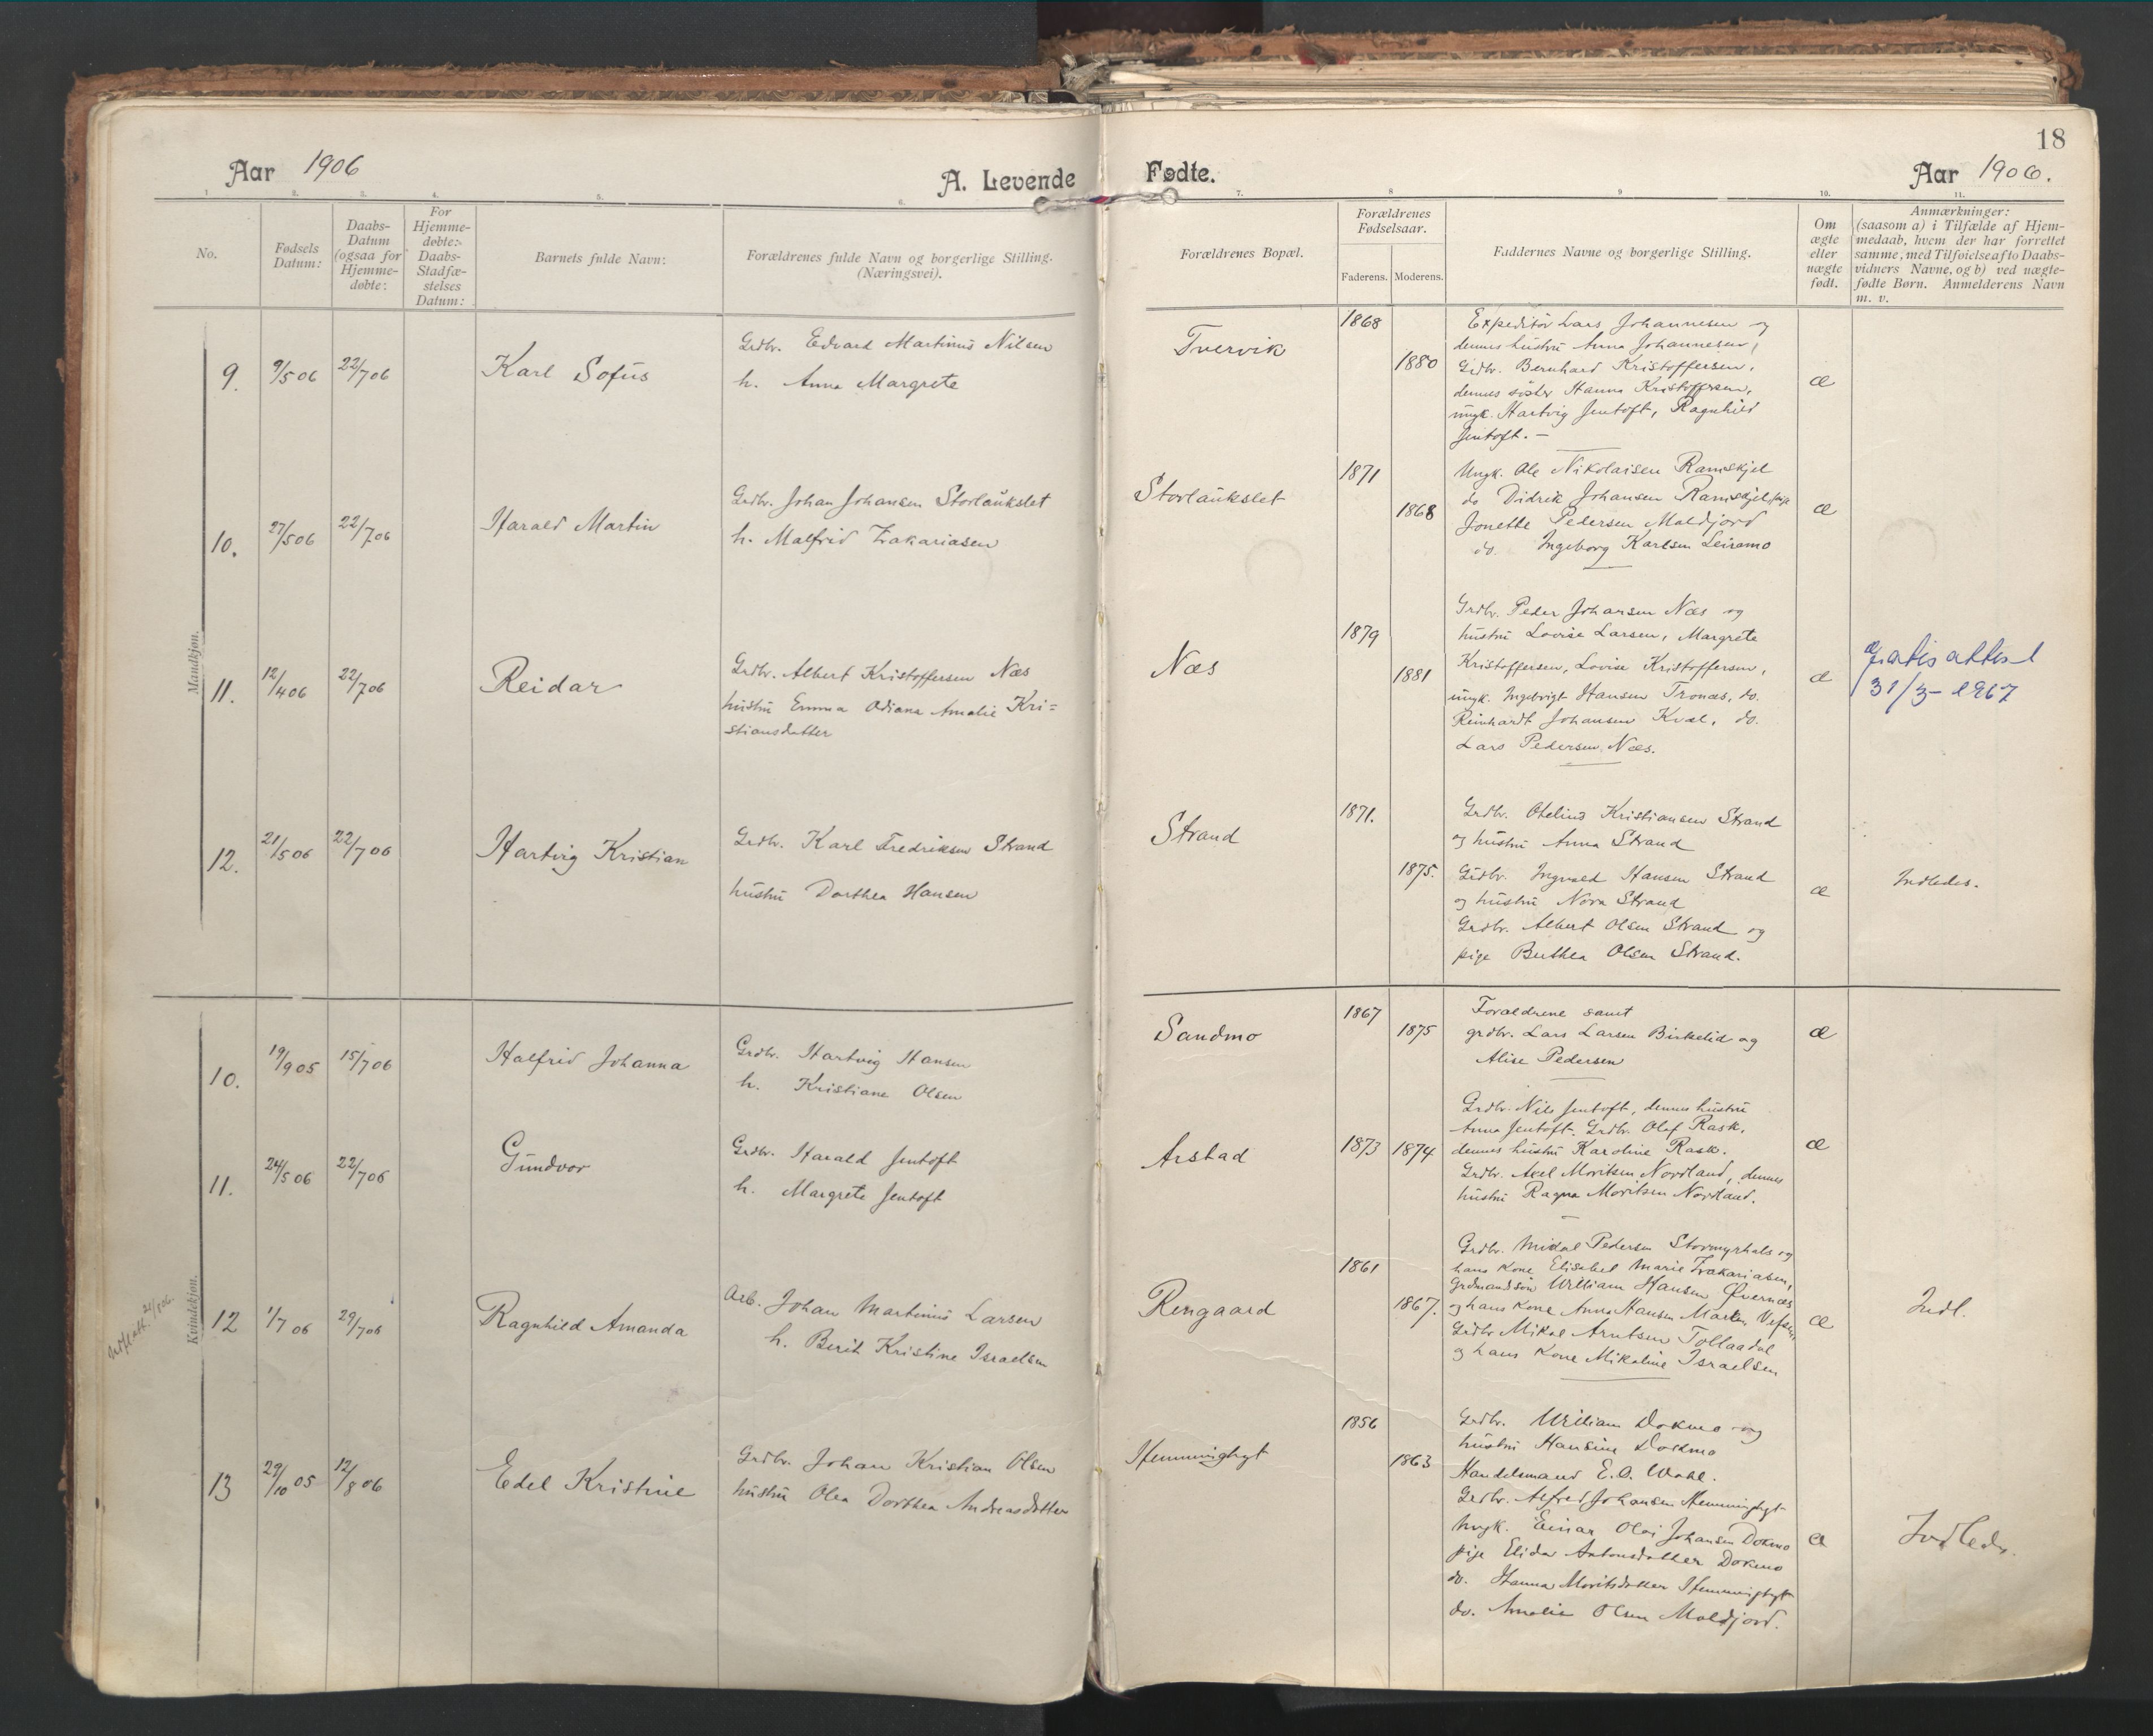 18
Aar 1906
A. Levende
Fødte.
Aar 1906.
1. 2. 3. 4. 5. 6. 7. 8 9 10. 11.
No.
Fødsels
Datum:
Daabs-
Datum
(ogsaa for
Hjemme-
døbte:
For
Hjemme-
døbte:
Daabs-
Stadfæ-
stelses
Datum:
Barnets fulde Navn:
Forældrenes fulde Navn og borgerlige Stilling.
(Næringsvei).
Forældrenes Bopæl.
Forældrenes
Fødselsaar.
Faderens. Moderens.
Faddernes Navne og borgerlige Stilling.
Om
ægte
eller
uægte
født.
Anmærkninger:
(saasom a) i Tilfælde af Hjem-
medaab, hvem der har forrettet
samme, med Tilføielse af to Daabs-
vidners Navne, og b) ved uægte-
fødte Børn. Anmelderens Navn
m. v.
Mandkjøn.
9. 9/5 06 22/7 06 Karl Sofus
Grdbr. Edvard Martinus Nilsen
h. Anna Margrete
Tvervik
1868
1880
Expeditør Lars Johannesen og
dennes hustru Anna Johannesen,
Grdbr. Bernhard Kristoffersen,
dennes søster Hanna Kristoffersen,
ungk. Hartvig Jentoft, Ragnhild
Jentoft. –
æ
10. 27/5 06 22/7 06 Harald Martin
Grdbr. Johan Johansen Storlaukslet
h. Malfrid Zakariasen
Storlaukslet
1871
1868
Ungk. Ole Nikolaisen Ramskjel
do Didrik Johansen Ramskjel, pige
Jonette Pedersen Moldjord
do. Ingeborg Karlsen Leiramo
æ
11. 12/4 06 22/7 06 Reidar
Grdbr. Albert Kristoffersen Næs
hustru Emma Odiana Amalie Kri=
stiansdatter
Næs
1879
1881
Grdbr. Peder Johansen Næs og
hustru Lovise Larsen, Margrete
Kristoffersen, Lovise Kristoffersen,
ungk. Ingebrigt Hansen Tronæs, do.
Reinhardt Johansen Kval, do.
Lars Pedersen Næs.
æ
Gratis attest
31/3-1967
12. 21/5 06 22/7 06 Hartvig Kristian
Grdbr. Karl Fredriksen Strand
hustru Dorthea Hansen
Strand
1871.
1875.
Grdbr. Otelius Kristiansen Strand
og hustru Anna Strand
Grdbr. Ingvald Hansen Strand
og hustru Nora Strand
Grdbr. Albert Olsen Strand og
pige Berthea Olsen Strand.
æ
Indledes.
Kvindekjøn.
10. 19/9 05 15/7 06 Halfrid Johanna
Grdbr. Hartvig Hansen
h. Kristiane Olsen
Sandmo
1867
1875
Forældrene samt
grdbr. Lars Larsen Birkelid og
Alise Pedersen
æ
11. 24/5 06 22/7 06 Gundvor
Grdbr. Harald Jentoft
h. Margrete Jentoft
Arstad
1873 1874
Grdbr. Nils Jentoft, dennes hustru
Anna Jentoft. Grdbr. Olaf Rask.
dennes hustru Karoline Rask.
Grdbr. Axel Moritsen Nordland, dennes
hustru Ragna Moritsen Nordland.
æ
Utflatt. 21/8 06.
12 1/7 06 29/7 06 Ragnhild Amanda
Arb. Johan Martinus Larsen
h. Berit Kristine Israelsen
Rengaard
1861
1867.
Grdbr. Mikal Pedersen Stormyrhals og
hans Kone Elisabet Marie Zakariasen,
Grdmandsøn William Hansen Qvernæs
og hans Kone Anna Hansen Vefsen
Grdbr. Mikal Arntsen Tollaadal
og hans Kone Mikaline Israelsen
æ
Indl.
13 29/10 05 12/8 06 Edel Kristine
Grdbr. Johan Kristian Olsen
hustru Olea Dorthea Andreasdatter
Hemmingtyt
1856
1863
Grdbr. William Dokmo og
hustru Hansine Dokmo
Handelsmand E. A. Wahl.
Grdbr. Alfred Johansen Hemmingtyt
Ungk. Einar Olai Johansen Dokmo
pige Elida Antonsdatter Dokmo
do. Hanna Moritsdatter Hemmingtyt
do. Amalie Olsen Moldjord.
æ
Indledes.